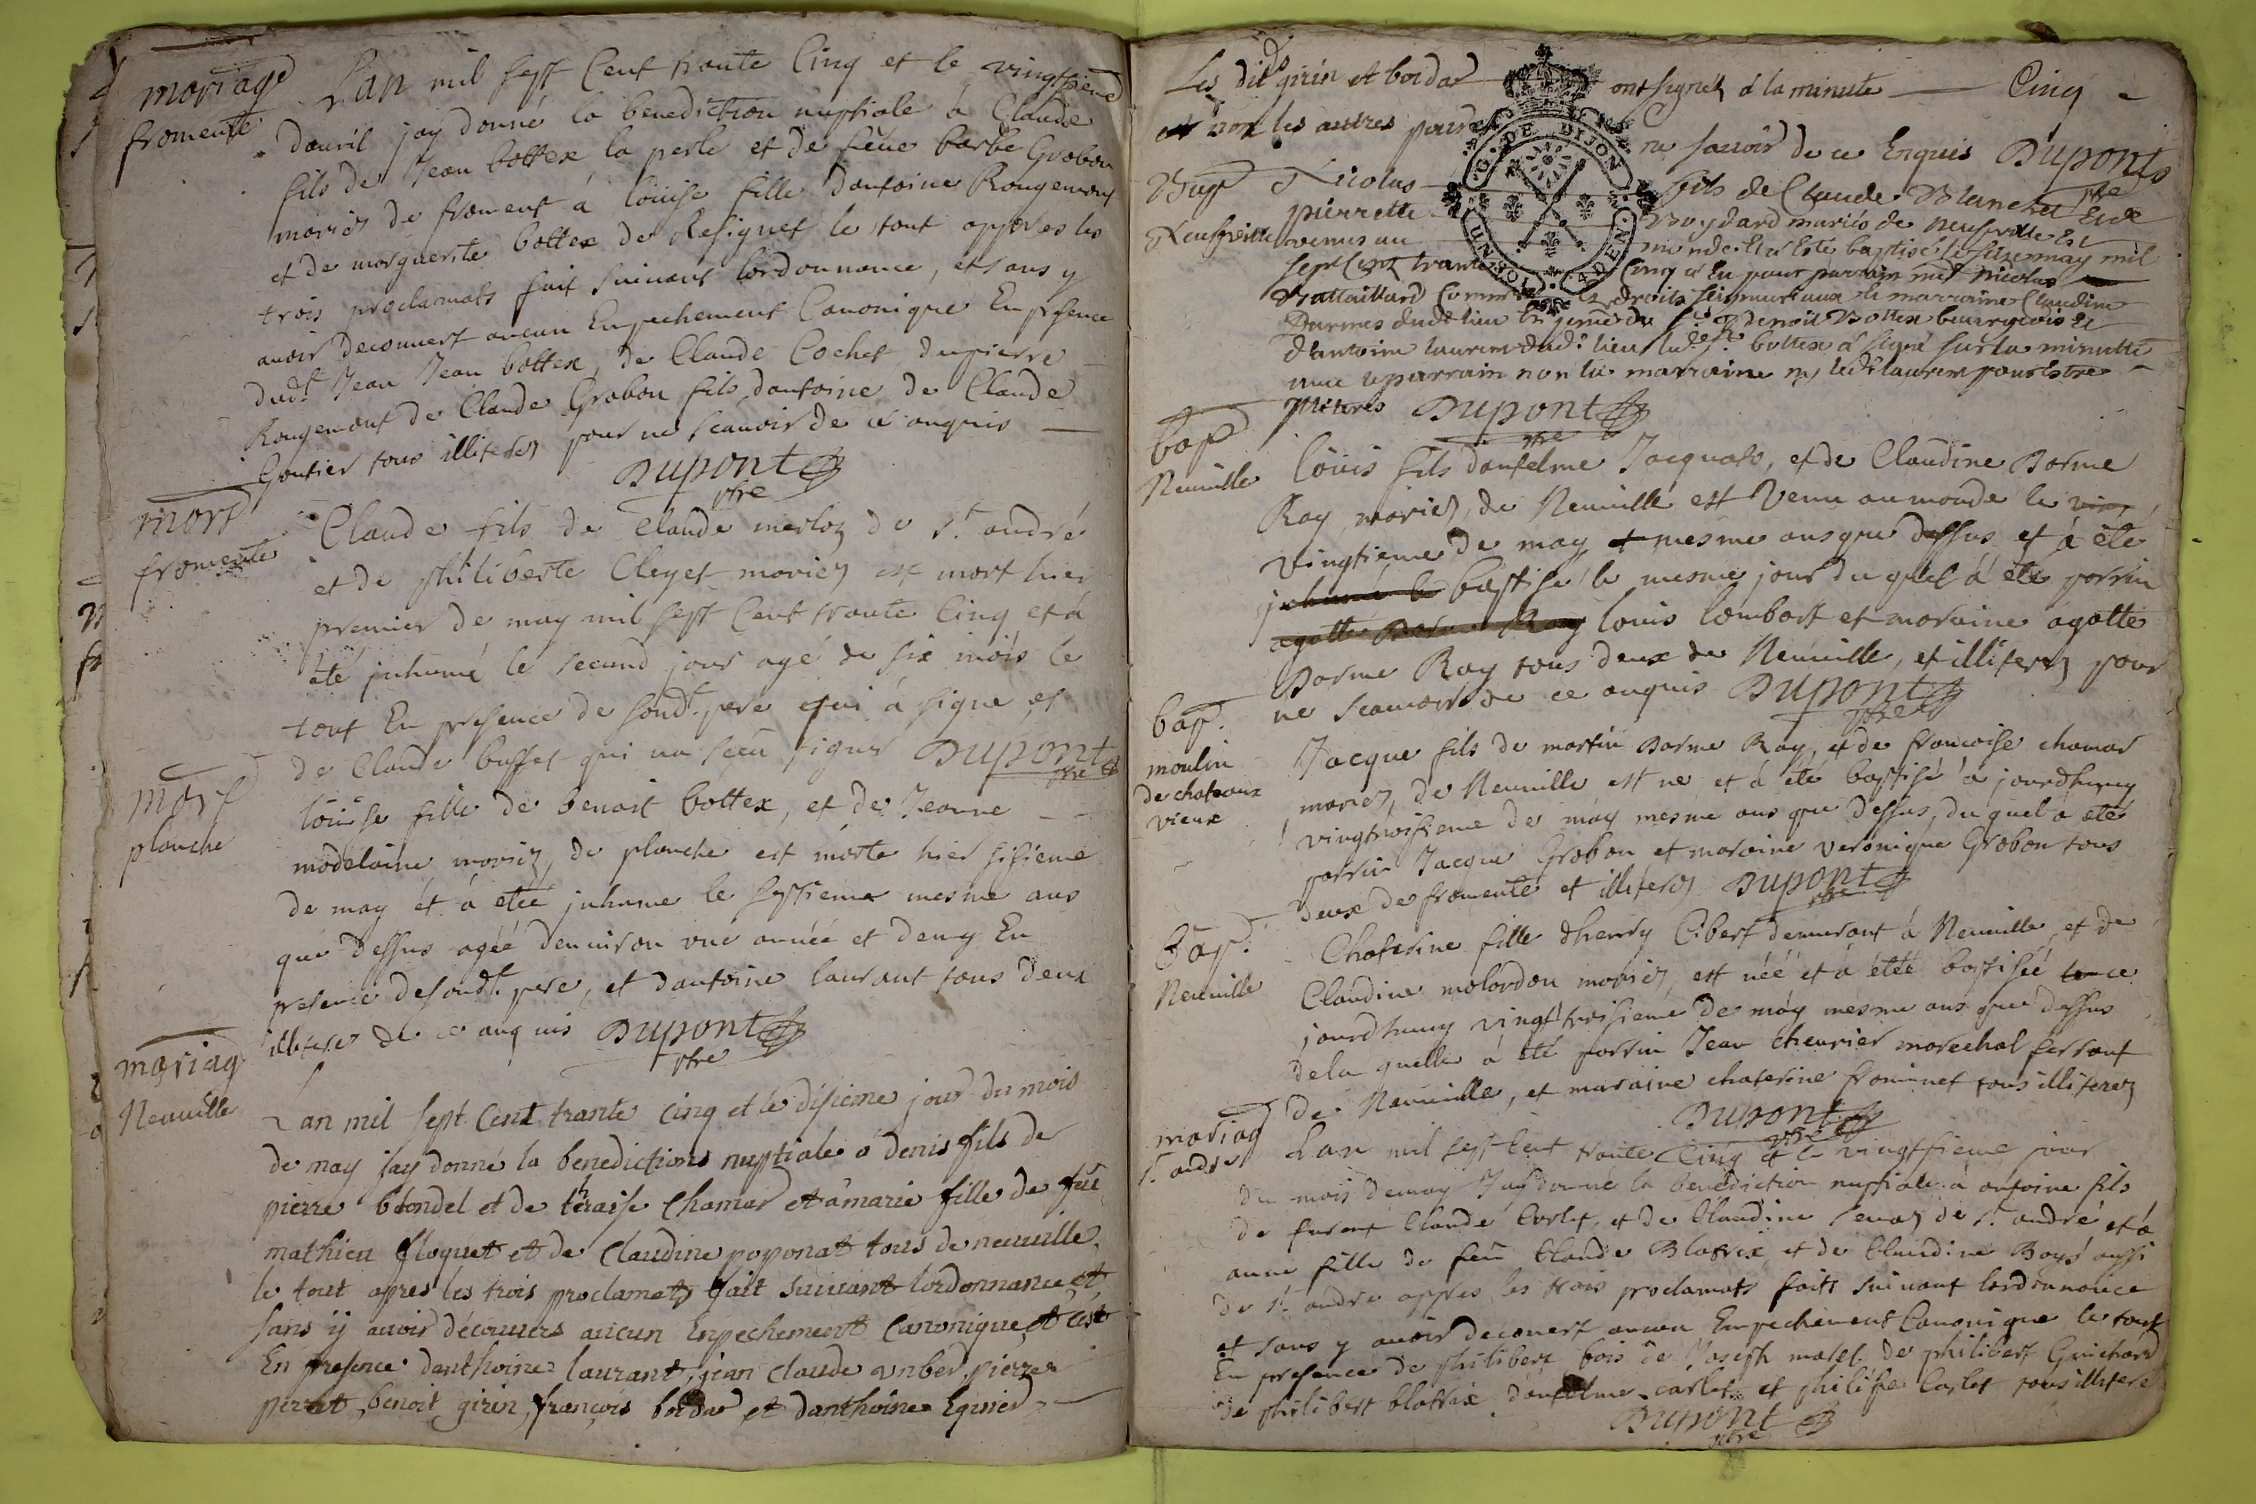 mariage
fromente
Lan mil sept Cent trante Cinq et le vingtsieme
davril jay donné la benediction nuptiale à Claude
fils de Jean bottex la perle et de feüe barbe Grobon
mariez de froment à loüise fille dantoine Rougemont
et de marguerite bottex de Resignet le tout appres les
trois proclamats fait suivant lordonnance, et sans y
avoir decouvert aucun Empechement Canonique En presence
dudt Jean Jean bottex, de Claude Cochet dupierre
Rougemont de Claude Grobon fils dantoine de Claude
Goutier tous illiterez pour ne scavoir de ce anquis
Dupont
ptre
mort
fromente
Claude fils de Claude merloz de St andré
et de philiberte Cleyet mariez est mort hier
premier de may mil sept Cent trante Cinq et à
été jnhumé le second jour agé de six mois le
tout En presence de sondt pere qui à signe et
de Claude buffet qui na sceu signer Dupont
ptre
mort
planche
loüise fille de benoit bottex, et de Jeanne
modelaine mariez, de planche est morte hier sisieme
de may et à etée jnhume le septieme mesme ans
que dessus agéé denviron une année et demy En
presence desondt pere, et dantoine laurant tous deux
illitere de ce anquis Dupont
ptre
mariag
Neuville
Lan mil sept Cent trante cinq et le disieme jour du mois
de may jay donné la benedictions nuptiale à denis fils de
pierre blondel et de thraise Chamar et a marie fille de füe
mathieu floquet et de Claudine poponat tous de neuville
le tout apres les trois proclamats fait suivant lordonnance et
sans y avoir découvers aucun Enpechement Canonique et cest
En presence danthoine laurant, jean Claude unber pierre
perrat benoit girin, françois bordar et danthoine Eginer
Les dits girin et bordar ont signéz à la minute Cinq
et non les autres pour ne savoir de ce Enquis Dupont
ptre
Bap
Neufville
Nicolas fils de Claude Blanchet Et de
pierrette Boydard mariés de neufville Est
venus au monde et a esté baptisé le sixe may mil
sept Cent trante Cinq à Eu pour parrain mr Nicolas
Battaillard Commis es droits seigneuriaux et marraine Claudine
Darmes dudt lieu En presence du sr benoit Bottex bourgeois Et
dantoine laurens dudt lieu ledt sr bottex à signé sur la minutte
avec le parrain non la marraine ny ledt laurens pour Estre
jlliteres Dupont
ptre
bap
Neuville
loüis fils danselme Jacquat, et de Claudine Darme
Ray, mariez, de Neuville est venu au monde le
vingtieme de may mesme ans que dessus et à été
baptisé le mesme jour du quel à été parrin
louis lombart et maraine agatte
Darme Ray tous deux de Neuville, et illiterez pour
ne scavoir de ce anquis Dupont
ptre
bap.
moulin
de chateaux
vieux
Jacque fils de martin Darme Ray, et de francoise chamar
mariez, de Neuville est ne et à été baptisé à jourdhuy
vingtroisieme de may mesme ans que dessus, du quel à été
parrin Jacque Grobon et maraine veronique Grobon tous
deux de fromente et illiterez Dupont
ptre
Bap.
Neuville
Chaterine fille dhenry Cibert demeurant à Neuville, et de
Claudine molardon mariez, est néé et à étée baptisée ce
jourdhuy vingt troisieme de may mesme ans que dessus
dela quelle à été parrin Jean chevrier marechal ferrant
de Neuville, et maraine chaterine frominet tous illiterez
Dupont
ptre
mariag
St andré
Lan mil sept Cent trante Cinq et le vingtsieme jour
du mois demay Jay donné la benediction nuptiale à antoine fils
de Claude Carlet, et de Claudine de St andré et à
anne fille de feü Claude Blatrix et de Claudine Boyé aussi
de St andre appres les trois proclamats faits suivant lordonnance
et sans y avoir decouvert aucun Empechement Canonique le tout
En presence de philibert bois de Joseph morel de philibert Guichard
de philibert blatrix danselme carlet et philipe Carlet tous illitere
Dupont
ptre
G. DE DIJON